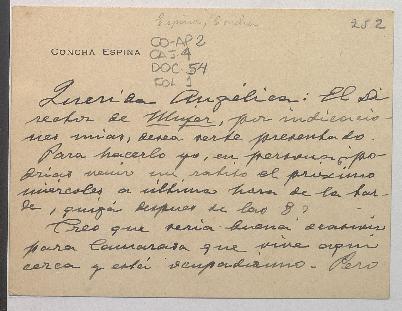 Espina, Concha
252
CONCHA ESPINA
CO-AP 2
CAJ-4
DOC. 54
FOL 1
Querida Angélica: El di
rector de Mujer, por indicacio
nes mias, desea serte presentado.
Para hacerlo yo, en persona, ¿po
drias venir un ratito el proximo
miércoles a última hora de la tar
de, quizá despues de las 8?
Creo que seria buena ocasión
para Camarasa que vive aqui
cerca y está ocupadisimo. Pero